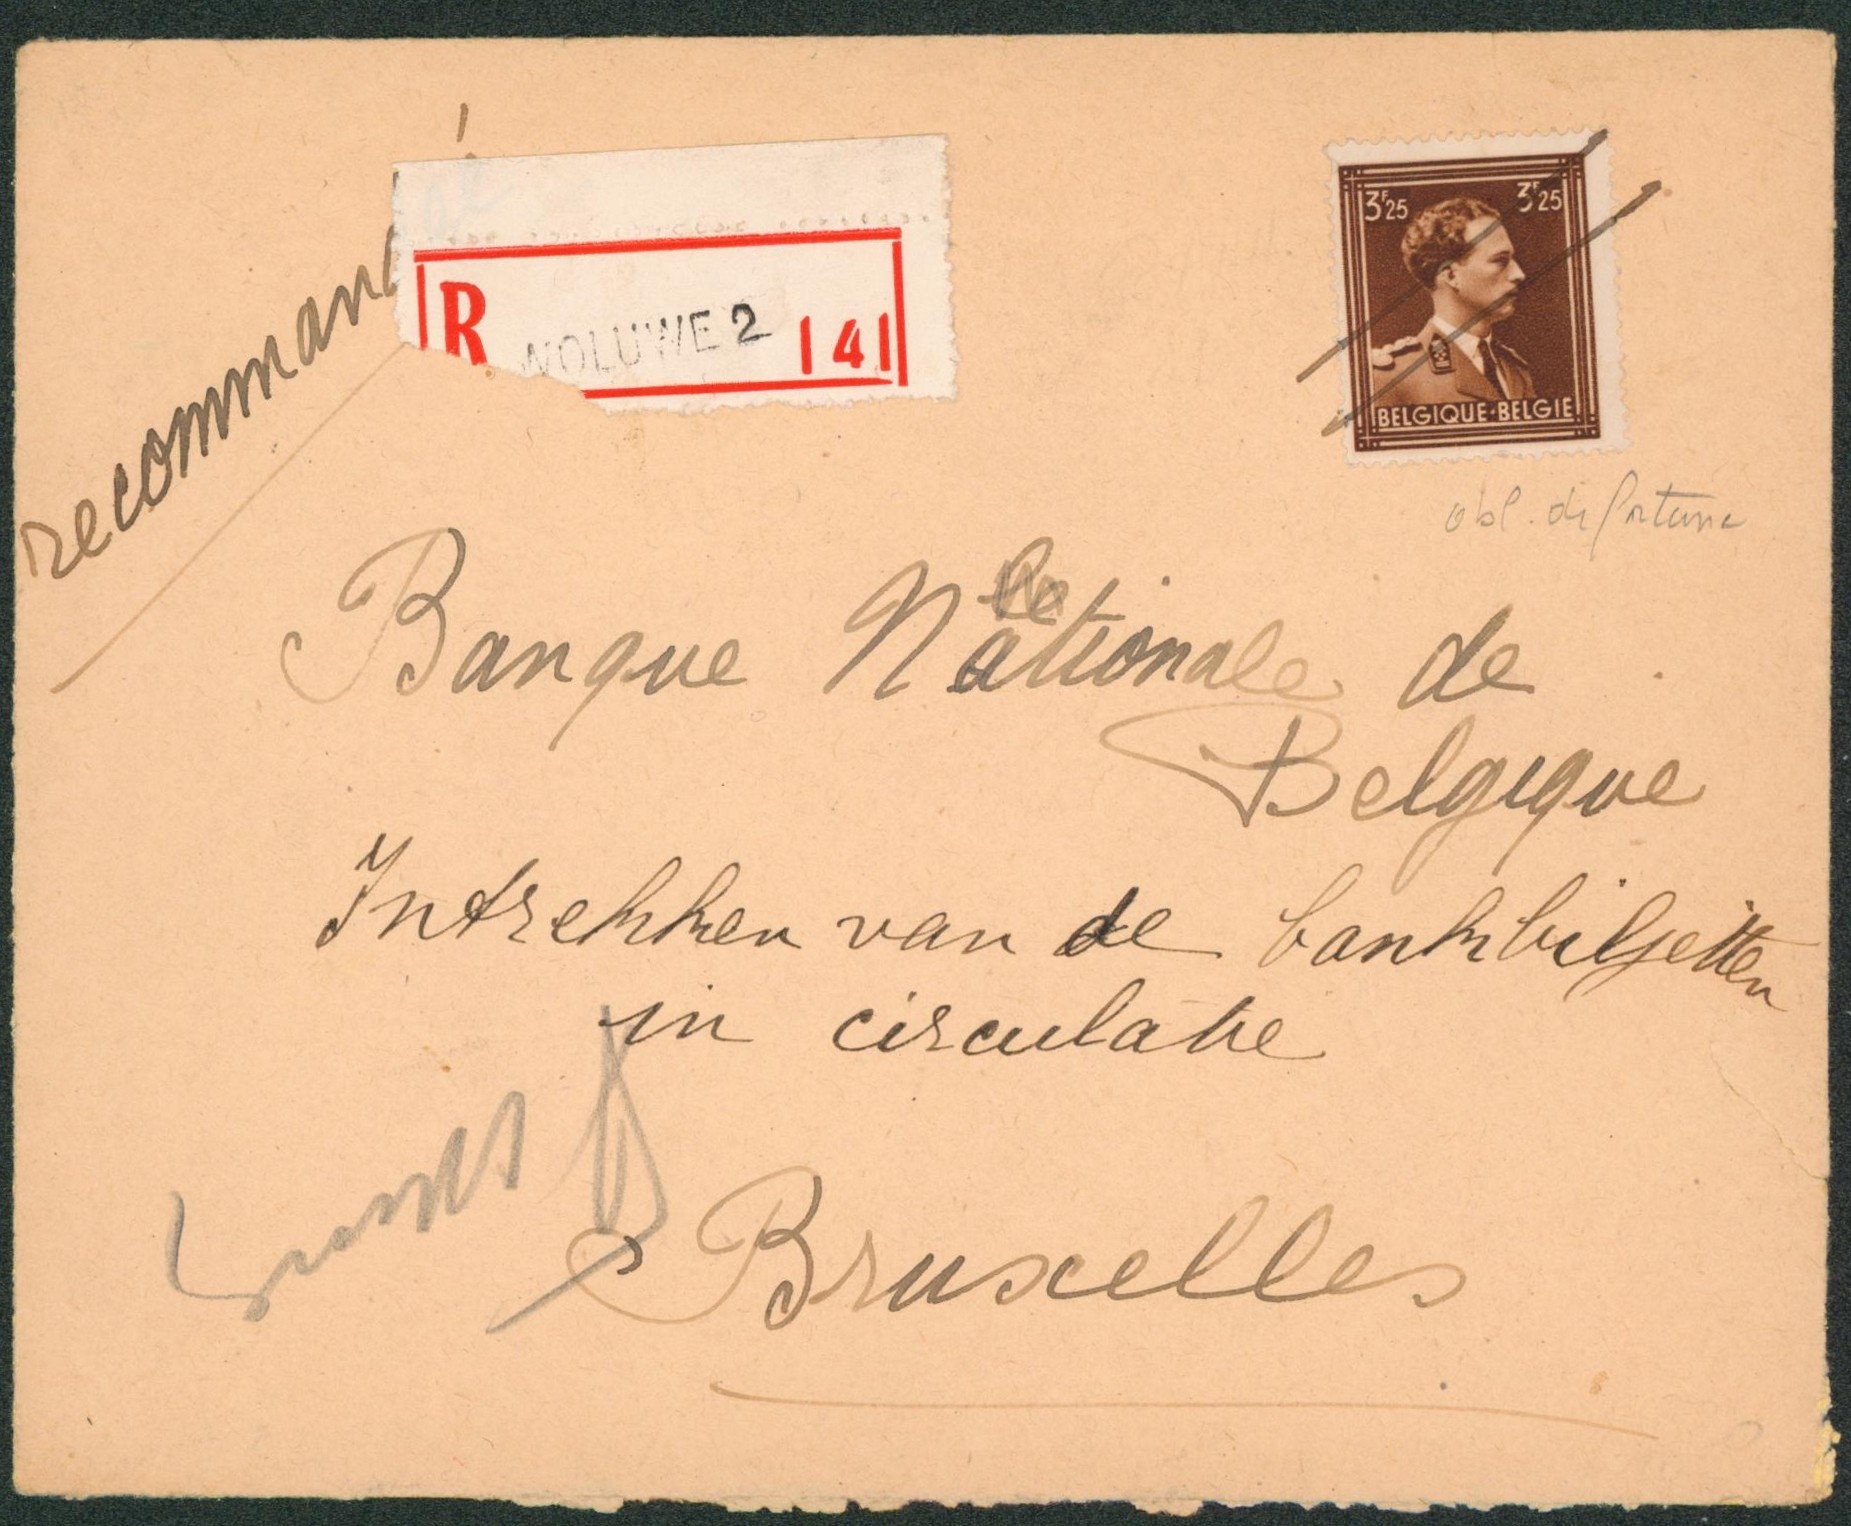 recommandé
R WOLUWE 2 141
3F25 3F25
BELGIQUE-BELGIE
obl. de fortune
Banque Nationale de
Belgique
Intrekken van de bankbiljetten
in circulatie
Bruxelles